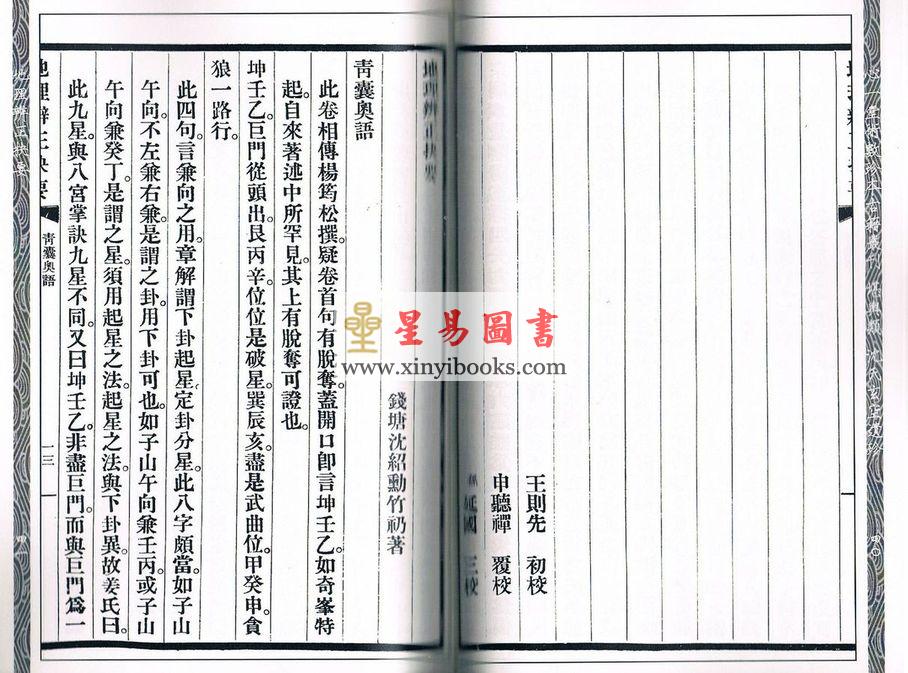 王則先　初校
申聽禪　覆校
延國　三校
地理辨正抉要
錢塘沈紹勳竹礽著
靑囊奧語
此卷相傳楊筠松撰。疑卷首句有脫奪。蓋開口卽言坤壬乙。如奇峯特
起。自來著述中所罕見。其上有脫奪可證也。
坤壬乙巨門從頭出。艮丙辛位位是破星。巽辰亥盡是武曲位。甲癸申貪
狼一路行。
此四句言兼向之用。章解謂下卦起星。定卦分星。此八字頗當。如子山
午向。不左兼右兼。是謂之卦。用下卦可也。如子山午向兼壬丙。或子山
午向兼癸丁。是謂之星。須用起星之法。起星之法。與下卦異。故姜氏曰。
此九星與八宮掌訣九星不同。又曰坤壬乙。非盡巨門。而與巨門爲一
地理辨正抉要
靑囊奧語
一三
星易圖書
www.xinyibooks.com